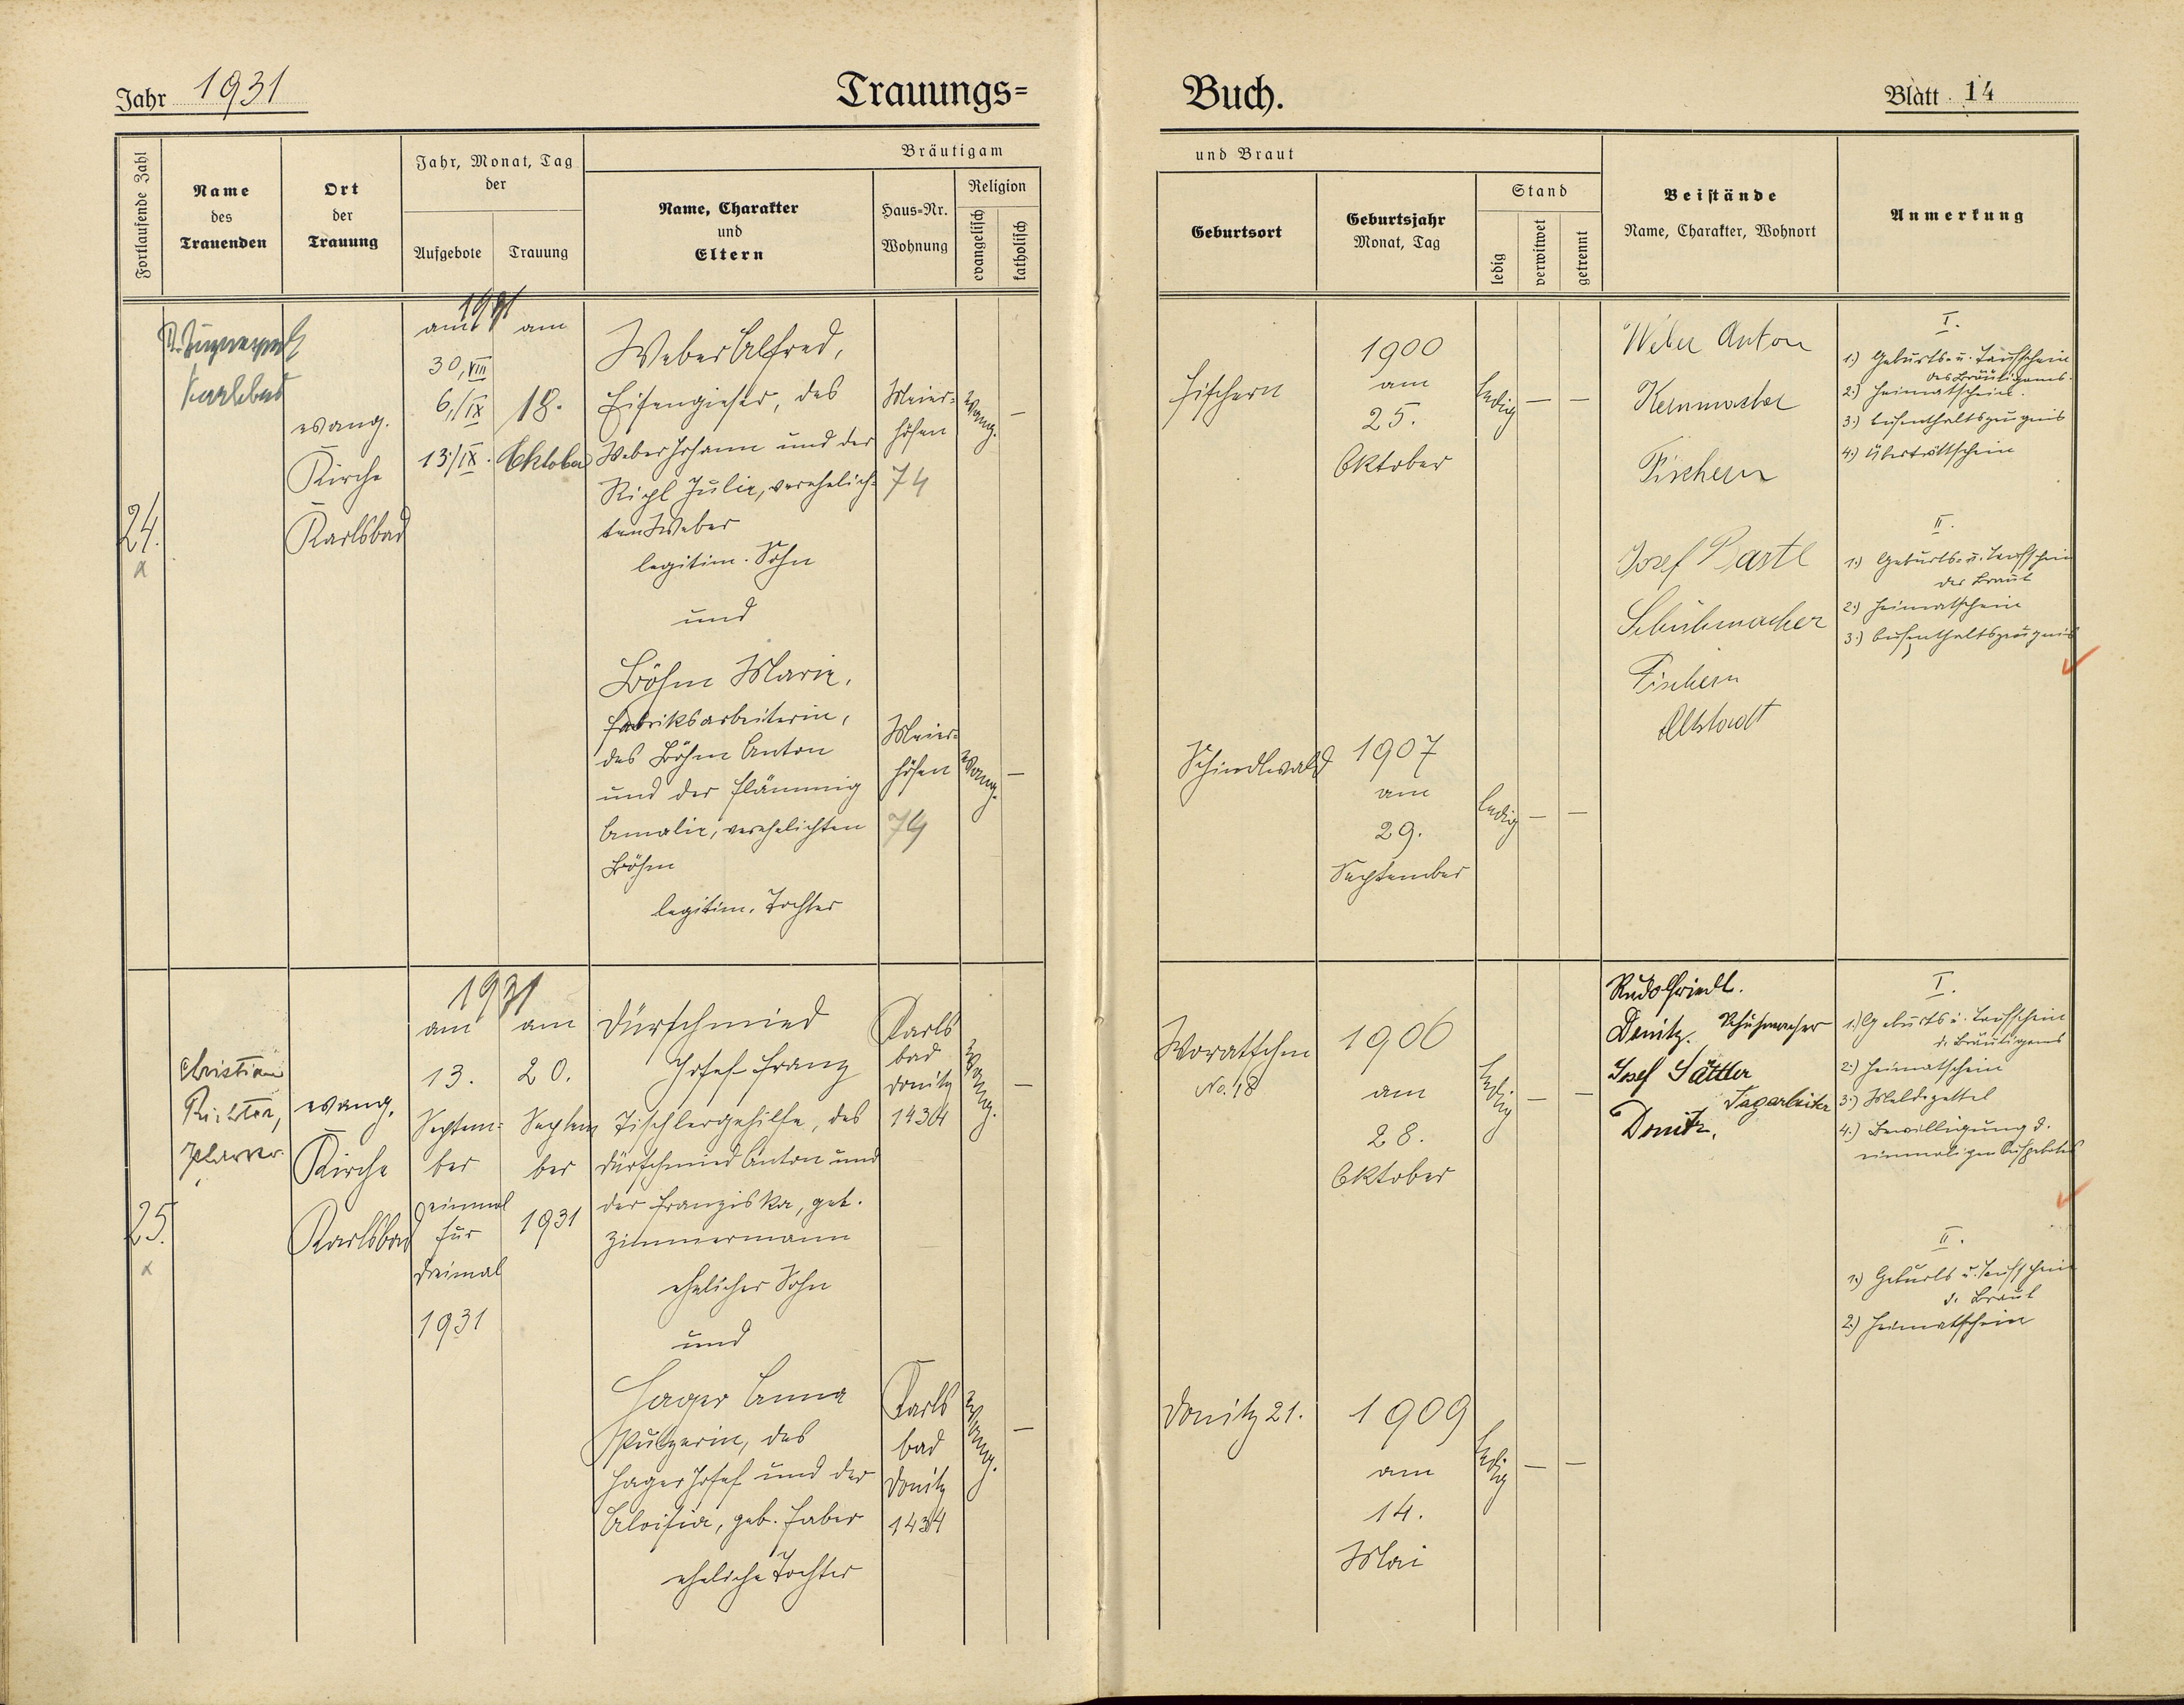 Jahr 1931
Trauungs=
Buch.
Blatt 14
Fortlaufende Zahl
Name
des
Trauenden
Ort
der
Trauung
Jahr, Monat, Tag
der
Aufgebote
Trauung
Bräutigam
Name, Charakter
und
Eltern
Haus=Nr.
Wohnung
Religion
evangelisch
katholisch
und Braut
Geburtsort
Geburtsjahr
Monat, Tag
Stand
ledig
verwitwet
getrennt
Beistände
Name, Charakter, Wohnort
Anmerkung
24.
x
Karlsbad
evang.
Kirche
Karlsbad
1931
am
30./VIII
6./IX
13./IX.
am
18.
Oktober
Weber Alfred,
Eisengießer, des
Weber Johann und der
Julie, verehelich=
ten Weber
legitim. Sohn
und
Böhm Marie,
Fabriksarbeiterin,
des Böhm Anton
und der Flämmig
Amalie, verehelichten
Böhm
legitim. Tochter
Meier=
höfen
74
evang.
—
Meier=
höfen
74
evang.
—
Fischern
1900
am
25.
Oktober
ledig
—
—
Schindlwald
1907
am
29.
September
ledig
—
—
Weber Anton
Kernmacher
Fischern
Josef Bartl
Schuhmacher
Fischern
Altstadt
I.
1.) Geburts- u. Taufschein
des Bräutigams.
2.) Heimatschein.
3.) Aufenthaltszeugnis
4.) Übertrittschein
II.
1.) Geburts- u. Taufschein
der Braut
2.) Heimatschein
3.) Aufenthaltszeugnis
25.
x
Christian
Richter,
Pfarrer
evang.
Kirche
Karlsbad
1931
am
13.
Septem=
ber
einmal
für
dreimal
1931
am
20.
Septem
ber
1931
Dürschmied
Josef Franz
Tischlergehilfe, des
Dürschmied Anton und
der Franziska, geb.
Zimmermann
ehelicher Sohn
und
Hager Anna
Putzerin, des
Hager Josef und der
Aloisia, geb. Faber
eheliche Tochter
Karls
bad
Donitz
1434
evang.
—
Karls
bad
Donitz
1434
evang.
—
Woratschen
No. 18
1906
am
28.
Oktober
ledig
—
—
Donitz 21.
1909
am
14.
Mai
ledig
—
—
Donitz. Schuhmacher
Josef Sattler
Tagarbeiter
Donitz.
I.
1.) Geburts u. Taufschein
d. Bräutigams
2.) Heimatschein
3.) Meldezettel
4.) Bewilligung d.
einmaligen Aufgebotes
II.
1.) Geburts u. Taufschein
d. Braut
2.) Heimatschein